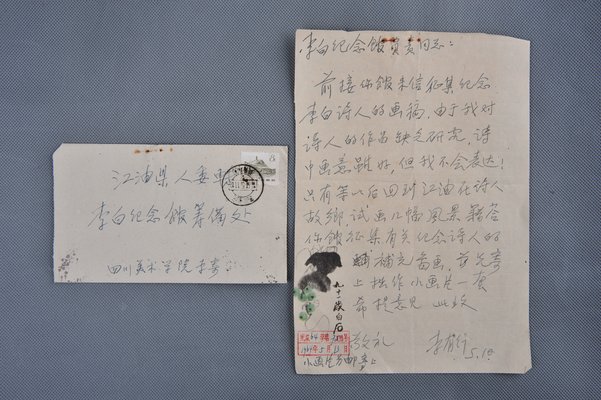 江油县人委
李白纪念馆筹备处
四川美术学院李寄
8
李白纪念馆负责同志：
前接你馆来信征集纪念
李白诗人的画稿，由于我对
诗人的作品缺乏研究，诗
中画意虽好，但我不会表达！
只有等以后回到江油在诗人
故乡，试画几幅风景籍答
你馆征集有关纪念诗人的
补充画，首先寄
上拙作小画片一套
希提意见 此致
敬礼 李有行
5.18
九十二歲白石
1964年5月
小画片另邮寄上